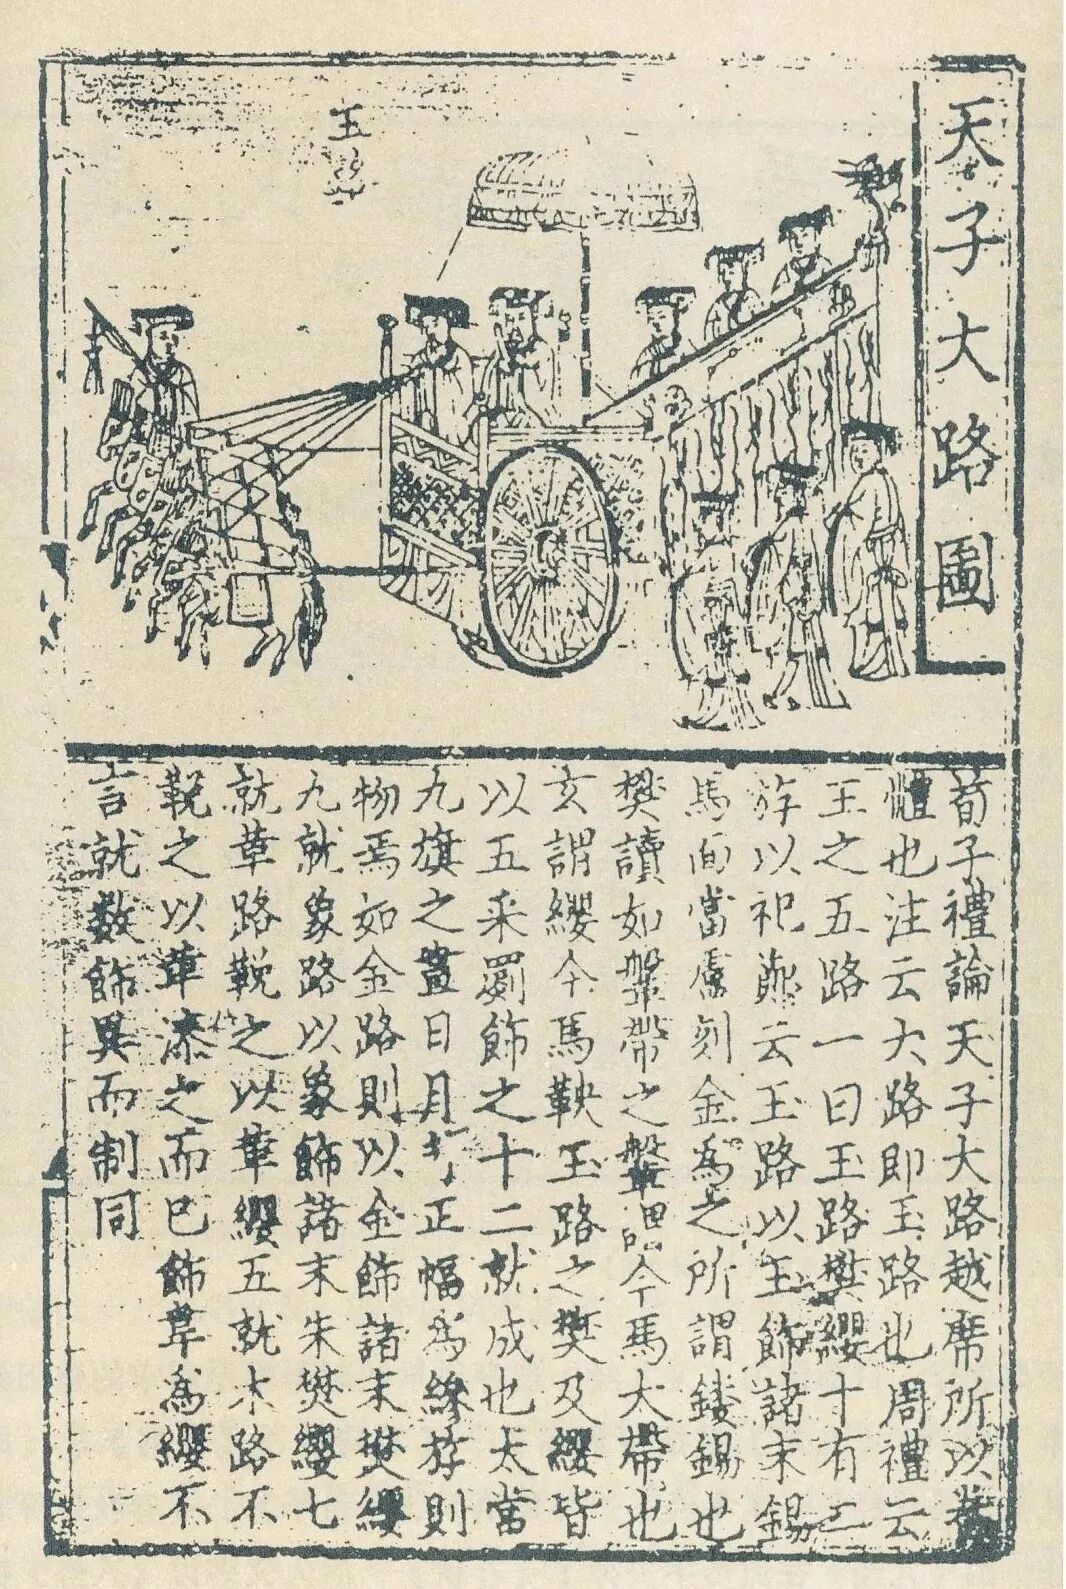 天子大路圖
玉
荀子禮論天子大路越席所以養
體也注云大路即玉路也周禮云
王之五路一曰玉路樊纓十有二
斿以祀 云玉路以玉飾諸末錫
馬面當盧刻金為之所謂鏤錫也
樊讀如鞶帶之鞶謂今馬大帶也
玄謂纓今馬鞅玉路之樊及纓皆
以五采罽飾之十二就成也太常
九旗之畫日月 正幅為縿斿則
物焉如金路則以金飾諸末樊纓
九就象路以象飾諸末朱樊纓七
就革路鞔之以革纓五就木路不
鞔之以革漆之而已飾革為纓不
言就數飾異而制同